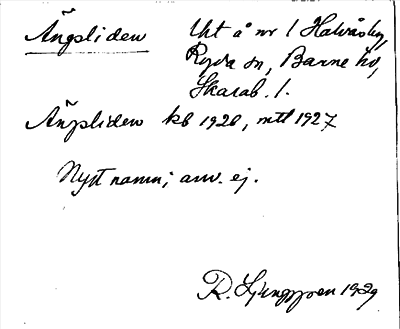 Ängsliden Uht å nr 1 Halvås by,
Ryda sn, Barne hd,
Skarab. l.
Ängsliden kb 1920, mtl 1927
Nytt namn; anv. ej.
R. Ljunggren 1929